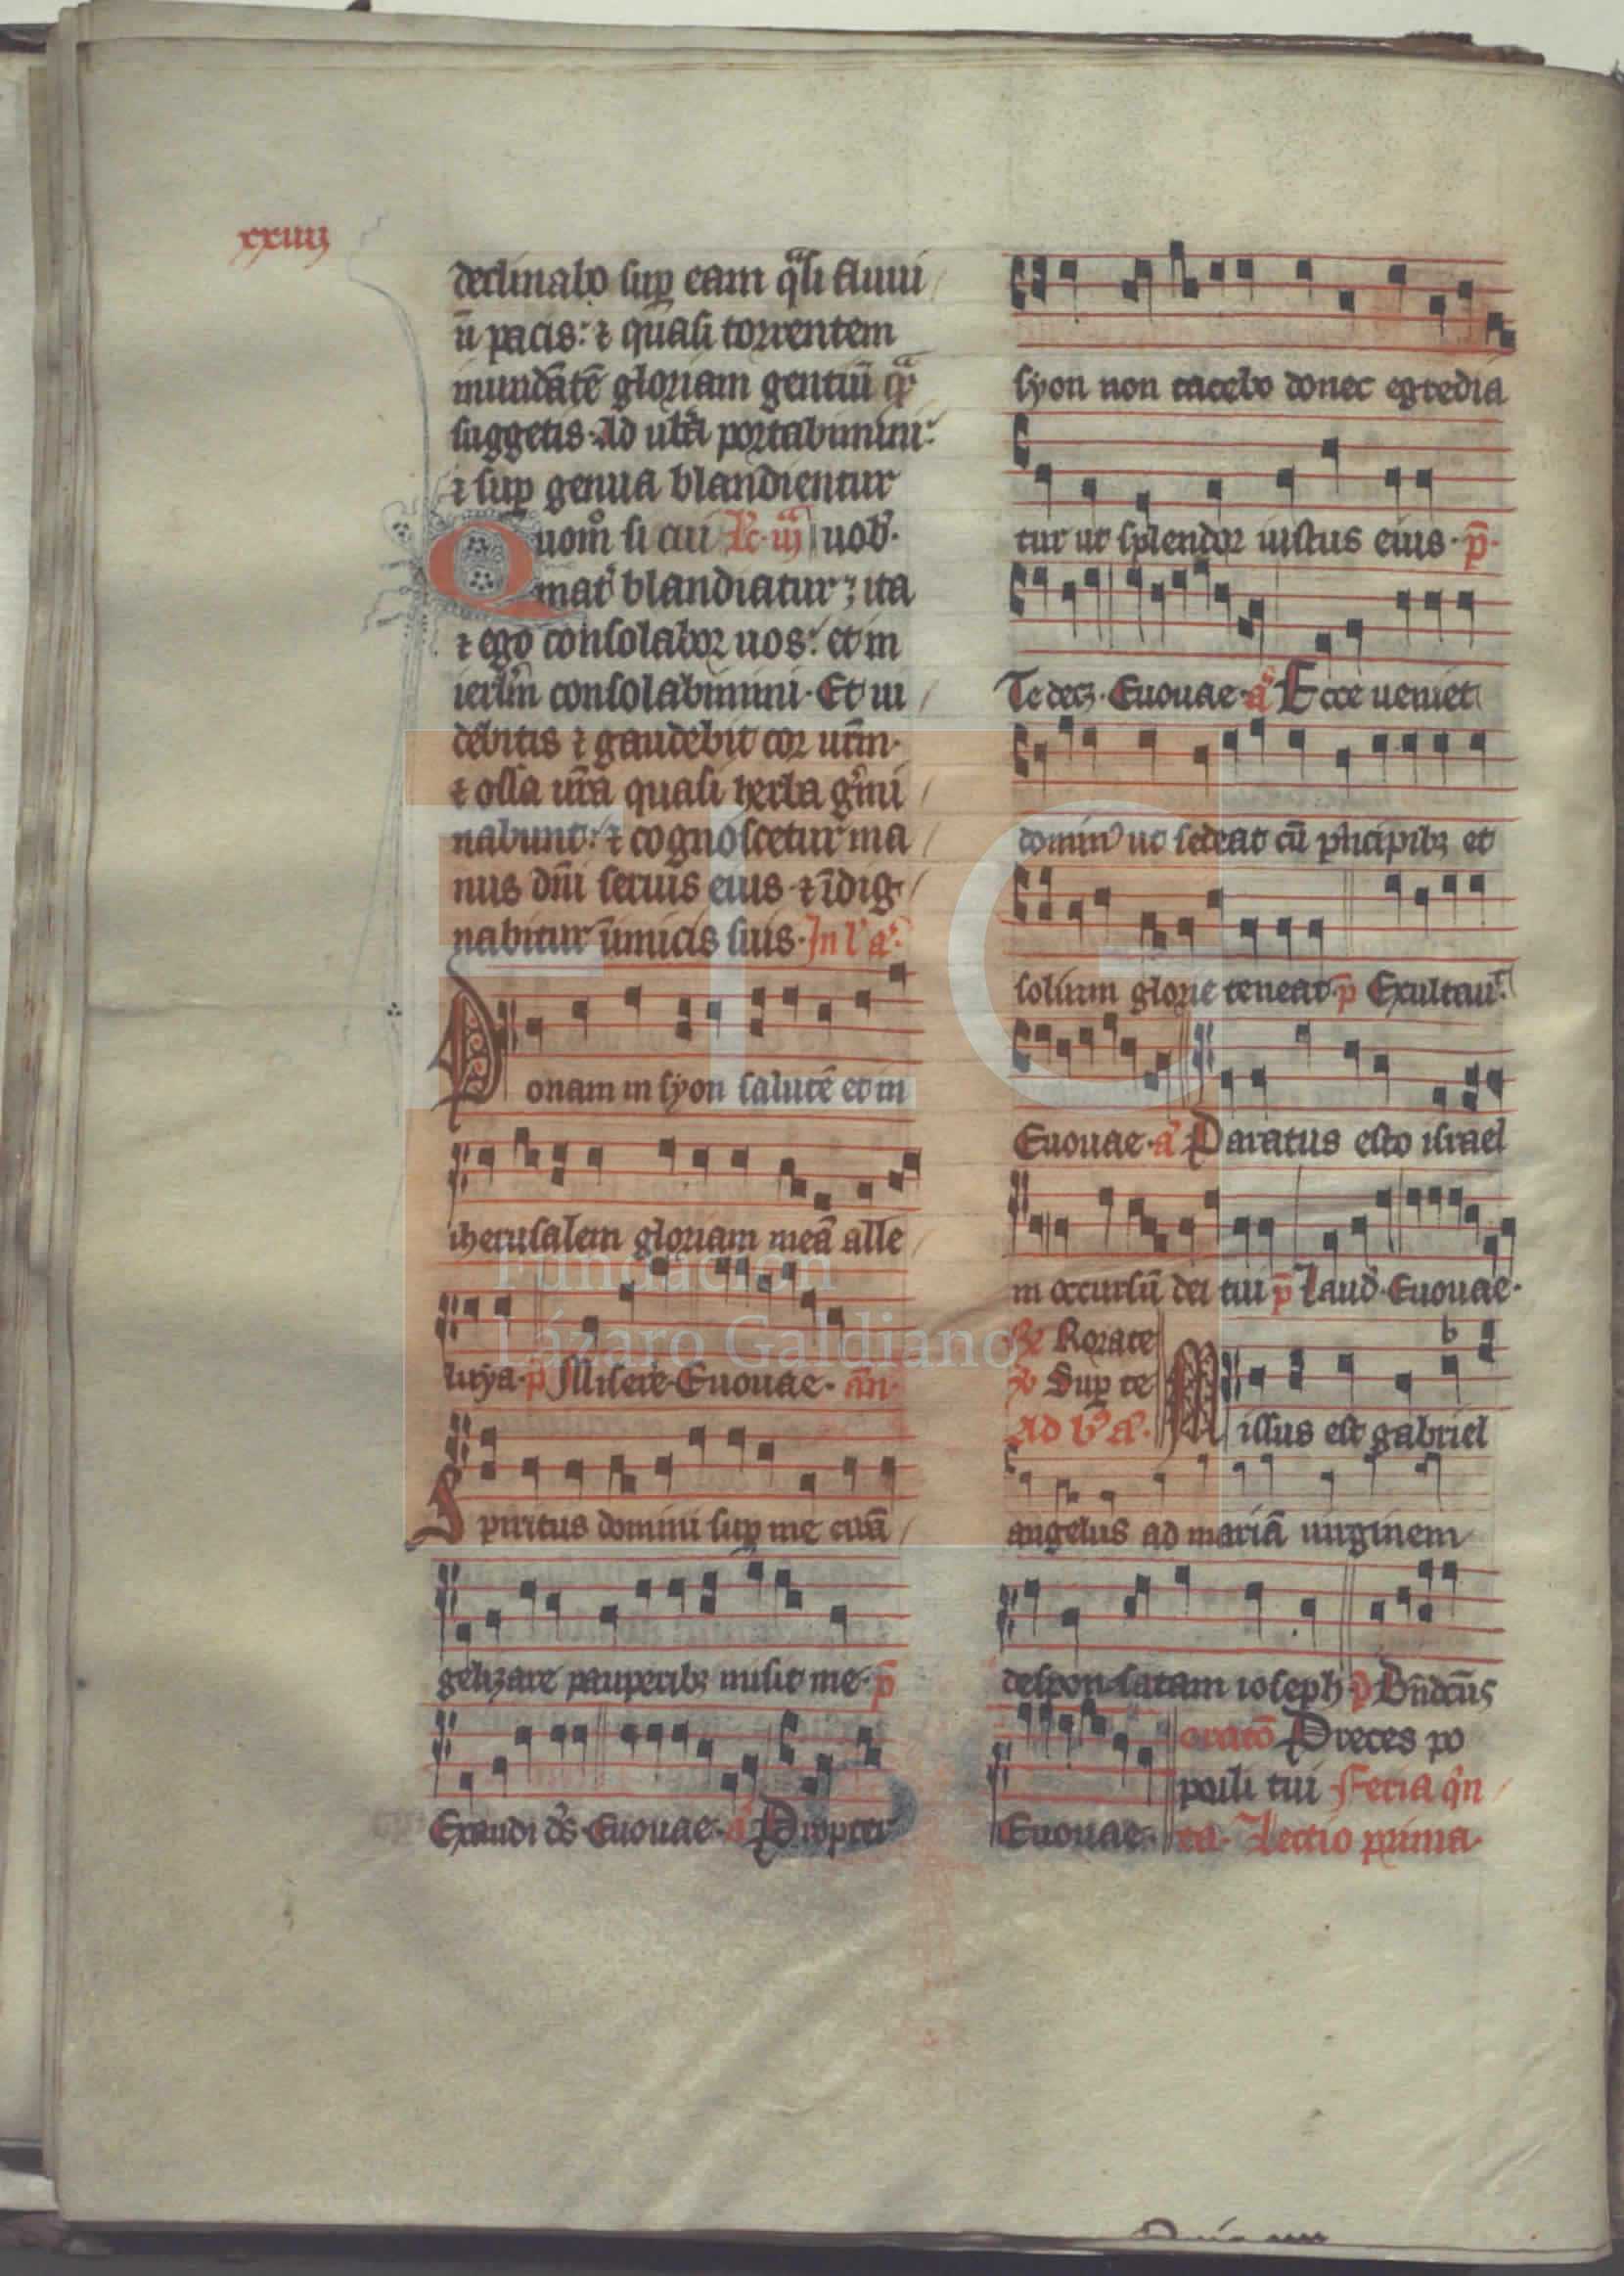 xxiiij
declinabo sup̱ eam q̃si fluui
ū pacis: ⁊ quasi torrentem
inundãtẽ gloriam gentiũ q̃
suggetis. Ad ub̃a portabimini:
⁊ sup̱ genua blandientur
uom̊ si cui lc̃. iijᵃ uob̾.
Qmat̾ blandiatur; ita
⁊ ego consolabor uos: et in
ierl̃m consolabimini. Et ui
debitis ⁊ gaudebit cor ur̃m.
⁊ ossa ur̃a quasi herba g̾mi
nabunt: ⁊ cognoscetur ma
nus dñi seruis eius ⁊ ĩdig
nabitur inimicis suis. In l̾ a̾.
Donam in syon salutẽ et in
iherusalem gloriam meã alle
luya. p̃ Misere. Euouae. añ.
Spiritus domini sup̱ me euã
gelizare pauperibꝫ misit me. p̃
Exaudi d̾s. Euouae. a̾ Propter
syon non tacebo donec egredia
tur ut splendor iustus eius. p̃.
Te decꝫ. Euouae. a̾ Ecce ueniet
domin᷒ ut sedeat cũ p̾ncipibꝫ et
solium glorie teneat. p̃ Exultau̾.
Euouae. a̾ Paratus esto israel
in occursũ dei tui p̃ Laud̾. Euouae.
℟ Rorate
℣ Sup̱ te
Ad b̾ a̾. Missus est gabriel
angelus ad mariã uirginem
desponsatam ioseph. p̃ Bñdc̃us
oratõ Preces po
puli tui Feria q̾n
Euouae. ta. Lectio prima.
Fundación
Lázaro Galdiano
FLG